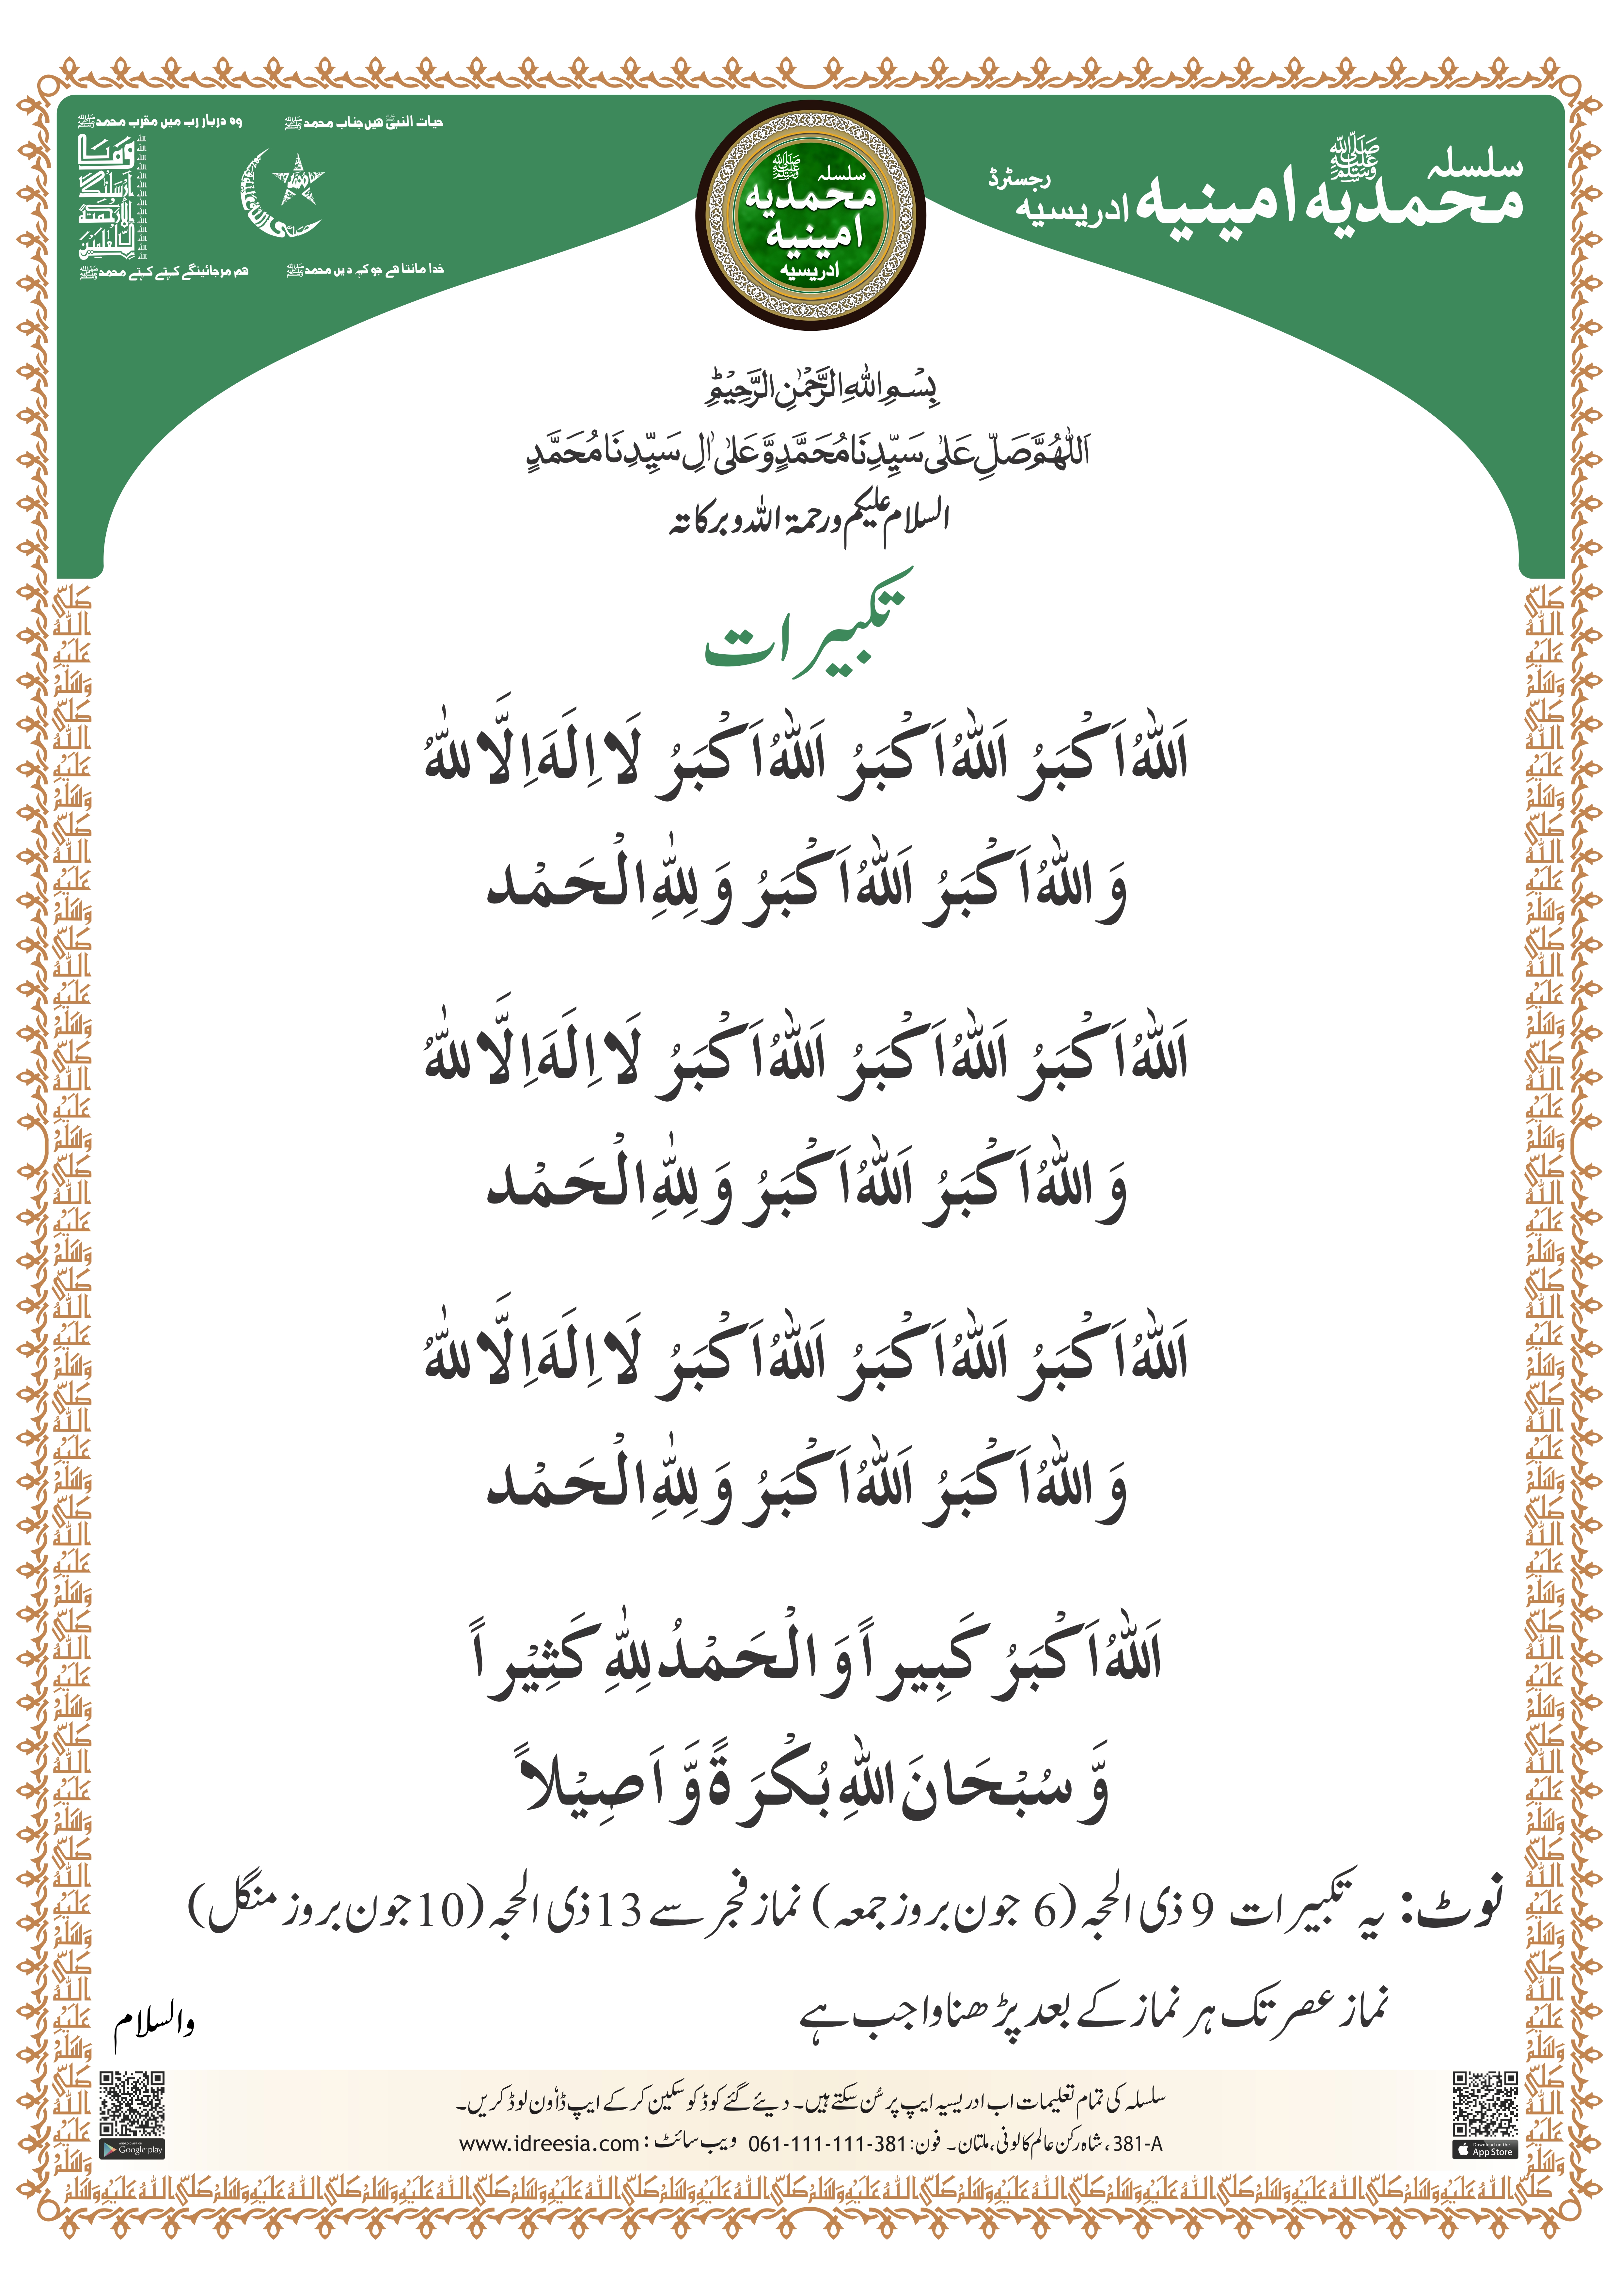 سلسلہ
محمدیہ ﷺ امینیہ ادریسیہ رجسٹرڈ
سلسلہ ﷺ
محمدیہ
امینیہ
ادریسیہ
حیات النبیؐ ھیں جناب محمد ﷺ
وہ دربار رب میں مقرب محمد ﷺ
وَمَا
اَرْسَلْنٰكَ
اِلَّا رَحْمَةً
لِّلْعٰلَمِيْنَ
خدا مانتا ھے جو کہہ دیں محمد ﷺ
ھم مرجائینگے کہتے کہتے محمد ﷺ
بِسْمِ اللهِ الرَّحْمٰنِ الرَّحِيْمِ
اَللّٰهُمَّ صَلِّ عَلٰى سَيِّدِنَا مُحَمَّدٍ وَّعَلٰى اٰلِ سَيِّدِنَا مُحَمَّدٍ
السلام علیکم ورحمۃ اللہ وبرکاتہ
تکبیرات
اَللّٰهُ اَكْبَرُ اَللّٰهُ اَكْبَرُ اَللّٰهُ اَكْبَرُ لَا اِلَهَ اِلَّا للّٰهُ
وَ اللّٰهُ اَكْبَرُ اَللّٰهُ اَكْبَرُ وَ لِلّٰهِ الْحَمْد
اَللّٰهُ اَكْبَرُ اَللّٰهُ اَكْبَرُ اَللّٰهُ اَكْبَرُ لَا اِلَهَ اِلَّا للّٰهُ
وَ اللّٰهُ اَكْبَرُ اَللّٰهُ اَكْبَرُ وَ لِلّٰهِ الْحَمْد
اَللّٰهُ اَكْبَرُ اَللّٰهُ اَكْبَرُ اَللّٰهُ اَكْبَرُ لَا اِلَهَ اِلَّا للّٰهُ
وَ اللّٰهُ اَكْبَرُ اَللّٰهُ اَكْبَرُ وَ لِلّٰهِ الْحَمْد
اَللّٰهُ اَكْبَرُ كَبِيراً وَ الْحَمْدُ لِلّٰهِ كَثِيْراً
وَّ سُبْحَانَ اللّٰهِ بُكْرَةً وَّ اَصِيْلاً
نوٹ: یہ تکبیرات 9 ذی الحجہ (6 جون بروز جمعہ) نماز فجر سے 13 ذی الحجہ (10 جون بروز منگل)
نماز عصر تک ہر نماز کے بعد پڑھنا واجب ہے
والسلام
سلسلہ کی تمام تعلیمات اب ادریسیہ ایپ پر سُن سکتے ہیں۔ دیئے گئے کوڈ کو سکین کر کے ایپ ڈاؤن لوڈ کریں۔
381-A ، شاہ رکن عالم کالونی، ملتان۔ فون: 061-111-111-381 ویب سائٹ : www.idreesia.com
Google play
Download on the
App Store
صَلَّى اللّٰهُ عَلَيْهِ وَسَلَّمْ